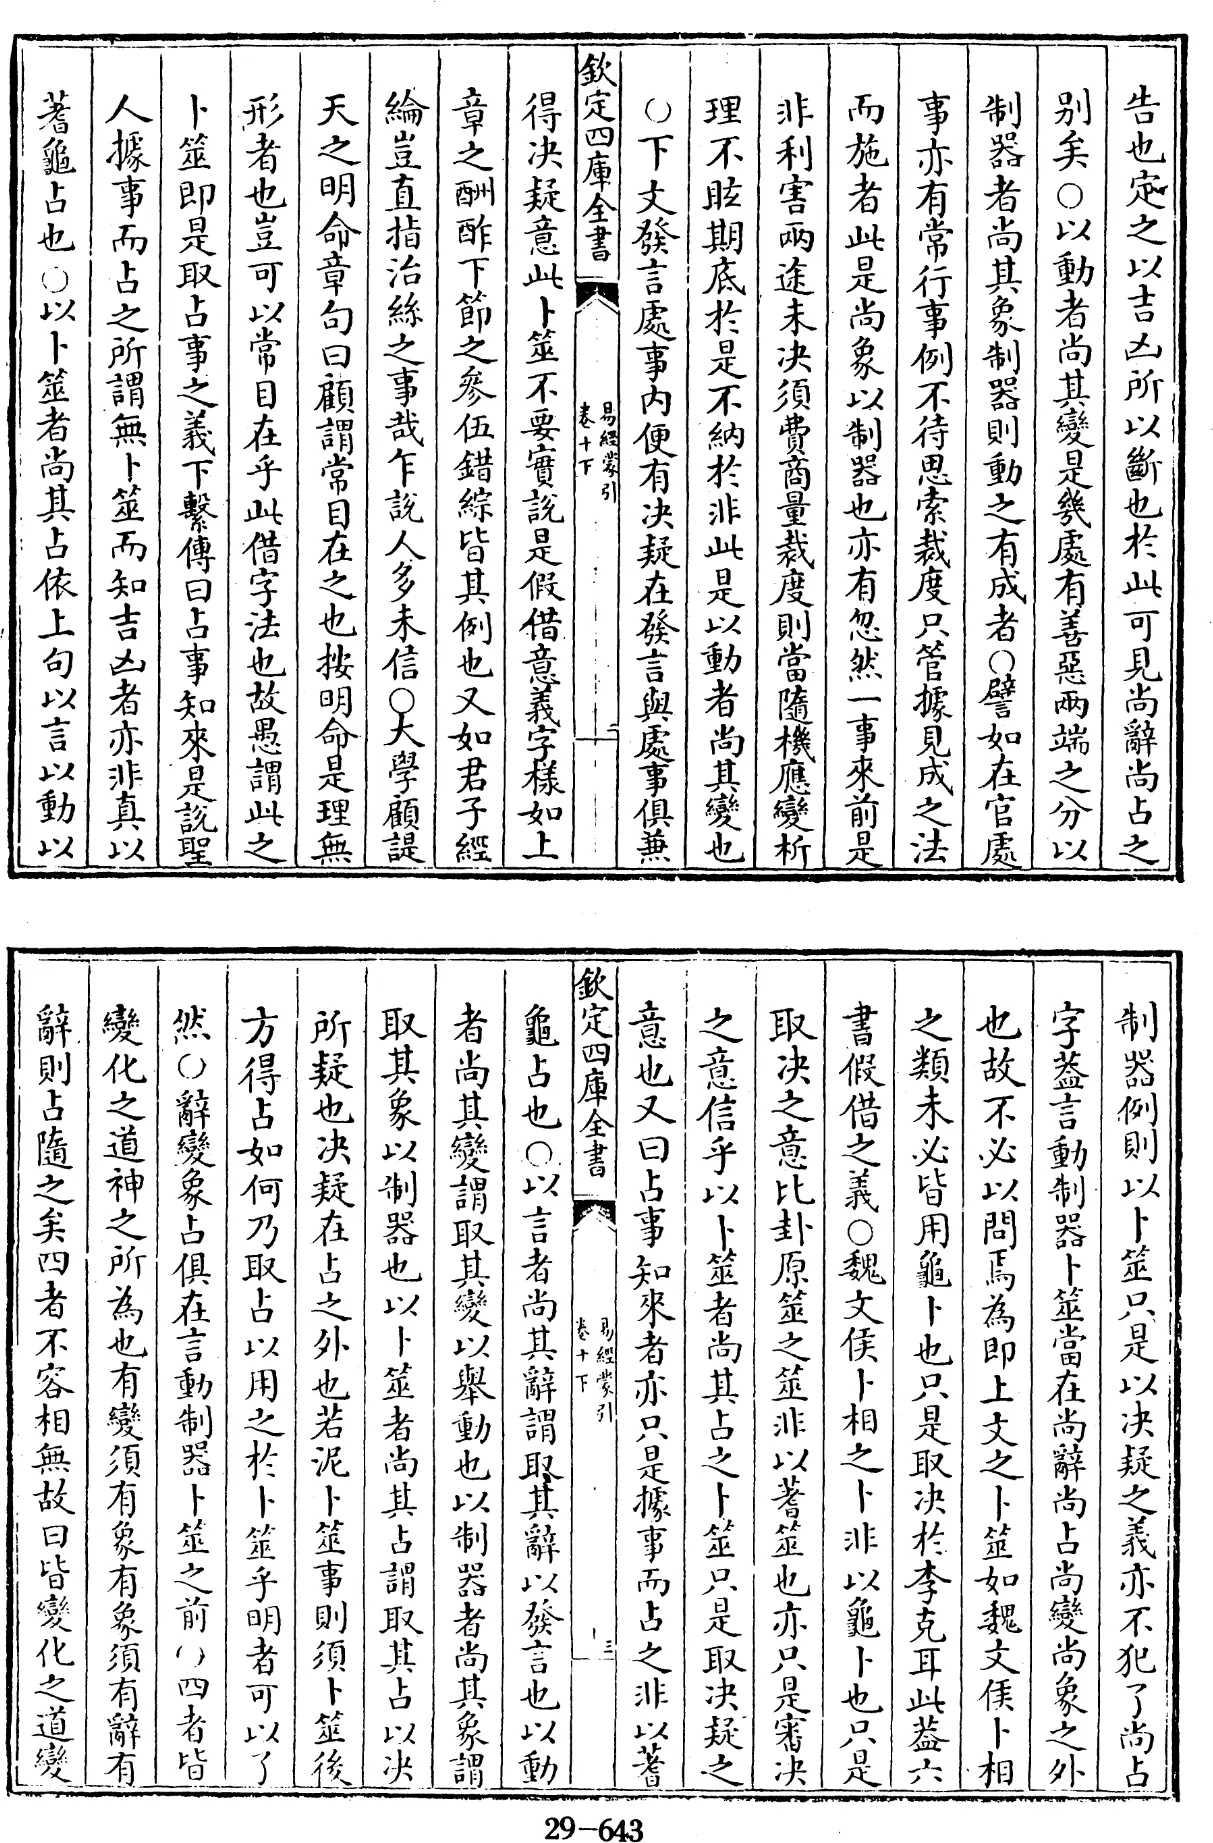 告也定之以吉凶所以斷也於此可見尚辭尚占之
别矣○以動者尚其變是幾處有善惡兩端之分以
制器者尚其象制器則動之有成者○譬如在官處
事亦有常行事例不待思索裁度只管據見成之法
而施者此是尚象以制器也亦有忽然一事來前是
非利害兩途未决須費商量裁度則當隨機應變析
理不眩期底於是不納於非此是以動者尚其變也
○下文發言處事内便有决疑在發言與處事俱兼
欽定四庫全書
易經蒙引
卷十下
二
得决疑意此卜筮不要實説是假借意義字樣如上
章之酬酢下節之參伍錯綜皆其例也又如君子經
綸豈直指治絲之事哉乍説人多未信○大學顧諟
天之明命章句曰顧謂常目在之也按明命是理無
形者也豈可以常目在乎此借字法也故愚謂此之
卜筮即是取占事之義下繫傳曰占事知來是説聖
人據事而占之所謂無卜筮而知吉凶者亦非真以
蓍龜占也○以卜筮者尚其占依上句以言以動以
制器例則以卜筮只是以决疑之義亦不犯了尚占
字葢言動制器卜筮當在尚辭尚占尚變尚象之外
也故不必以問焉為即上文之卜筮如魏文侯卜相
之類未必皆用龜卜也只是取决於李克耳此葢六
書假借之義○魏文侯卜相之卜非以龜卜也只是
取决之意比卦原筮之筮非以蓍筮也亦只是審决
之意信乎以卜筮者尚其占之卜筮只是取决疑之
意也又曰占事知來者亦只是據事而占之非以蓍
欽定四庫全書
易經蒙引
卷十下
三
龜占也○以言者尚其辭謂取其辭以發言也以動
者尚其變謂取其變以舉動也以制器者尚其象謂
取其象以制器也以卜筮者尚其占謂取其占以决
所疑也决疑在占之外也若泥卜筮事則須卜筮後
方得占如何乃取占以用之於卜筮乎明者可以了
然○辭變象占俱在言動制器卜筮之前○四者皆
變化之道神之所為也有變須有象有象須有辭有
辭則占隨之矣四者不容相無故曰皆變化之道變
29-643